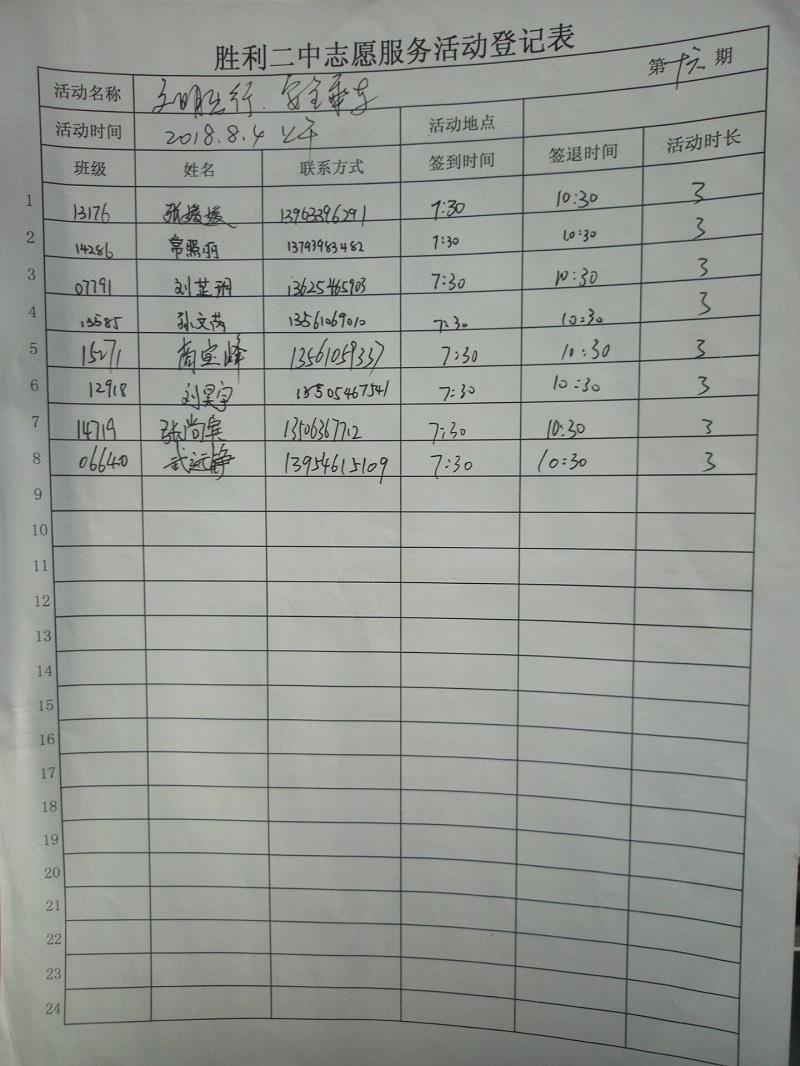 胜利二中志愿服务活动登记表
第 十六 期
活动名称 文明出行、安全乘车
活动时间 2018.8.4 上午 活动地点
班级 姓名 联系方式 签到时间 签退时间 活动时长
1 13176 张媛媛 13963396291 7:30 10:30 3
2 14286 常照羽 13793983482 7:30 10:30 3
3 07791 刘芷玥 13625465903 7:30 10:30 3
4 13585 孙文芮 13561069010 7:30 10:30 3
5 15271 商宝峰 13561059337 7:30 10:30 3
6 12918 刘昊宇 13505467541 7:30 10:30 3
7 14719 张尚宾 13506367712 7:30 10:30 3
8 06640 武远静 13954615109 7:30 10:30 3
9
10
11
12
13
14
15
16
17
18
19
20
21
22
23
24